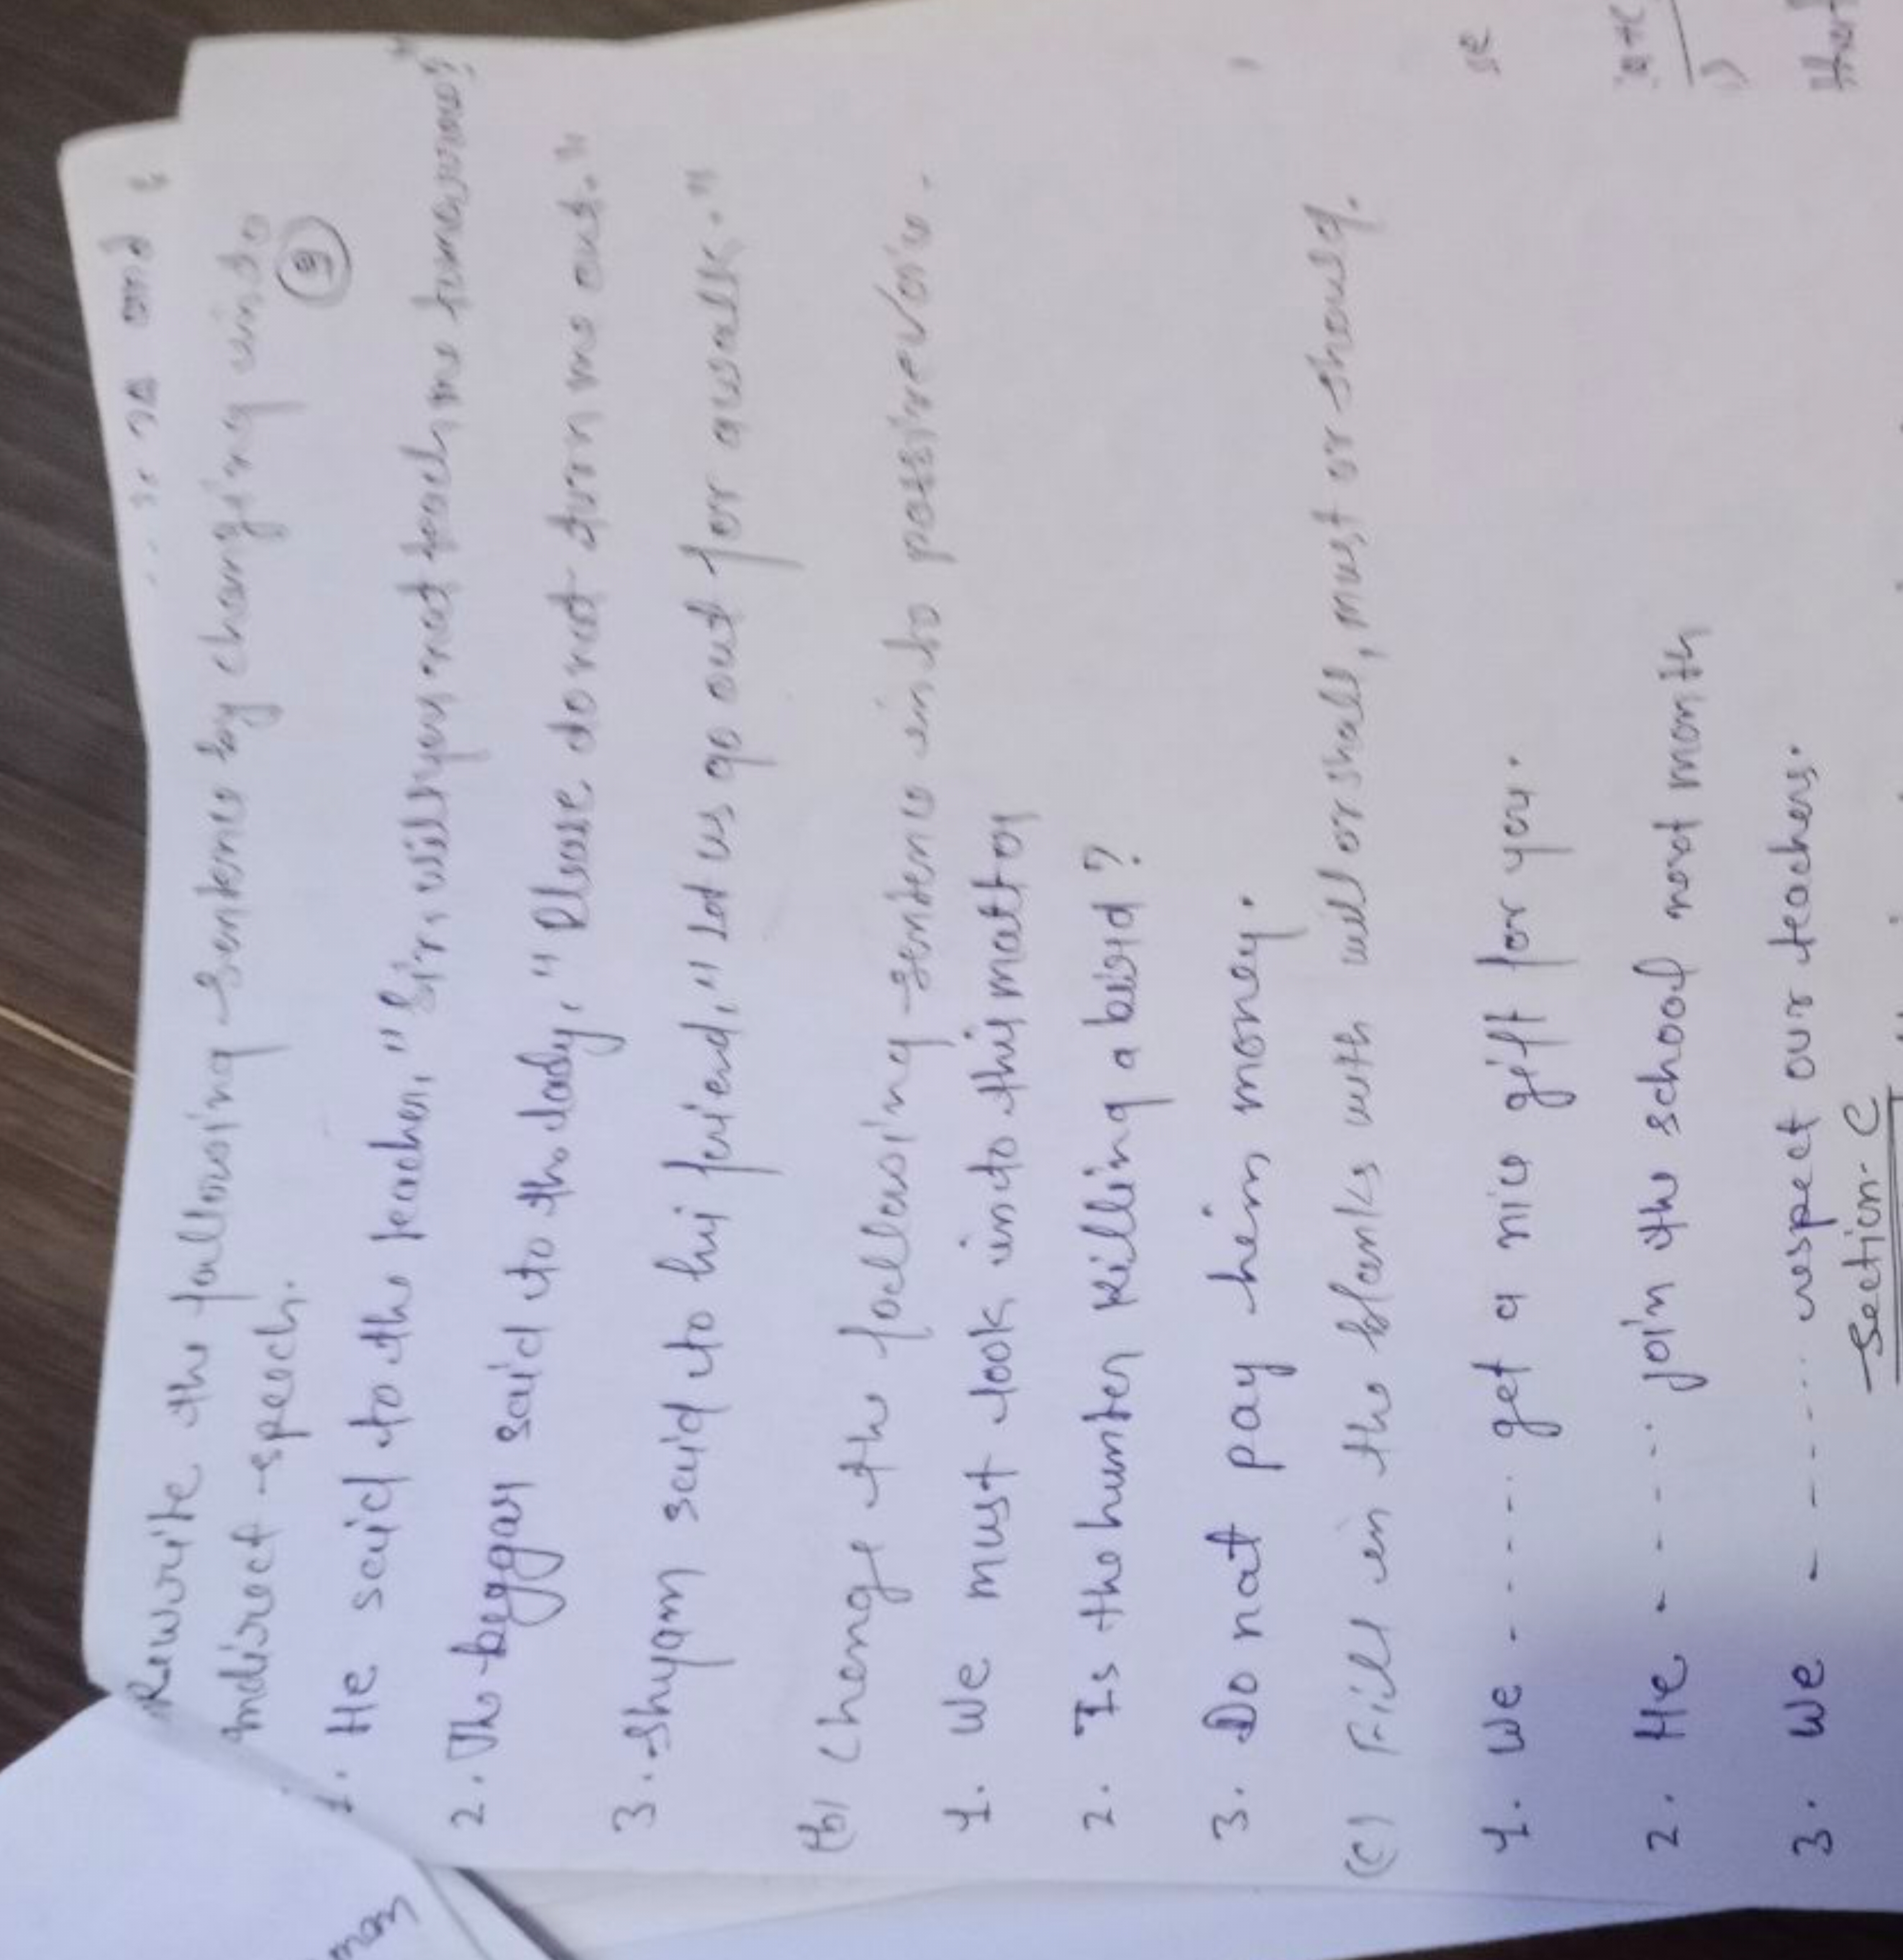 Rewrite the following sentence by changing into
indirect speech.
1. He said to the teacher, "Sir, will you not teach me tomorrow?"
2. The beggar said to the lady, "Please do not turn me out."
3. Shyam said to his friend, "Let us go out for a walk."
(b) Change the following sentence into passive voice.
1. We must look into this matter
2. Is the hunter killing a bird?
3. Do not pay him money.
(c) Fill in the blanks with will or shall, must or should.
1. We ------ get a nice gift for you.
2. He ------ join the school next month
3. We ------ respect our teachers.
Section-C